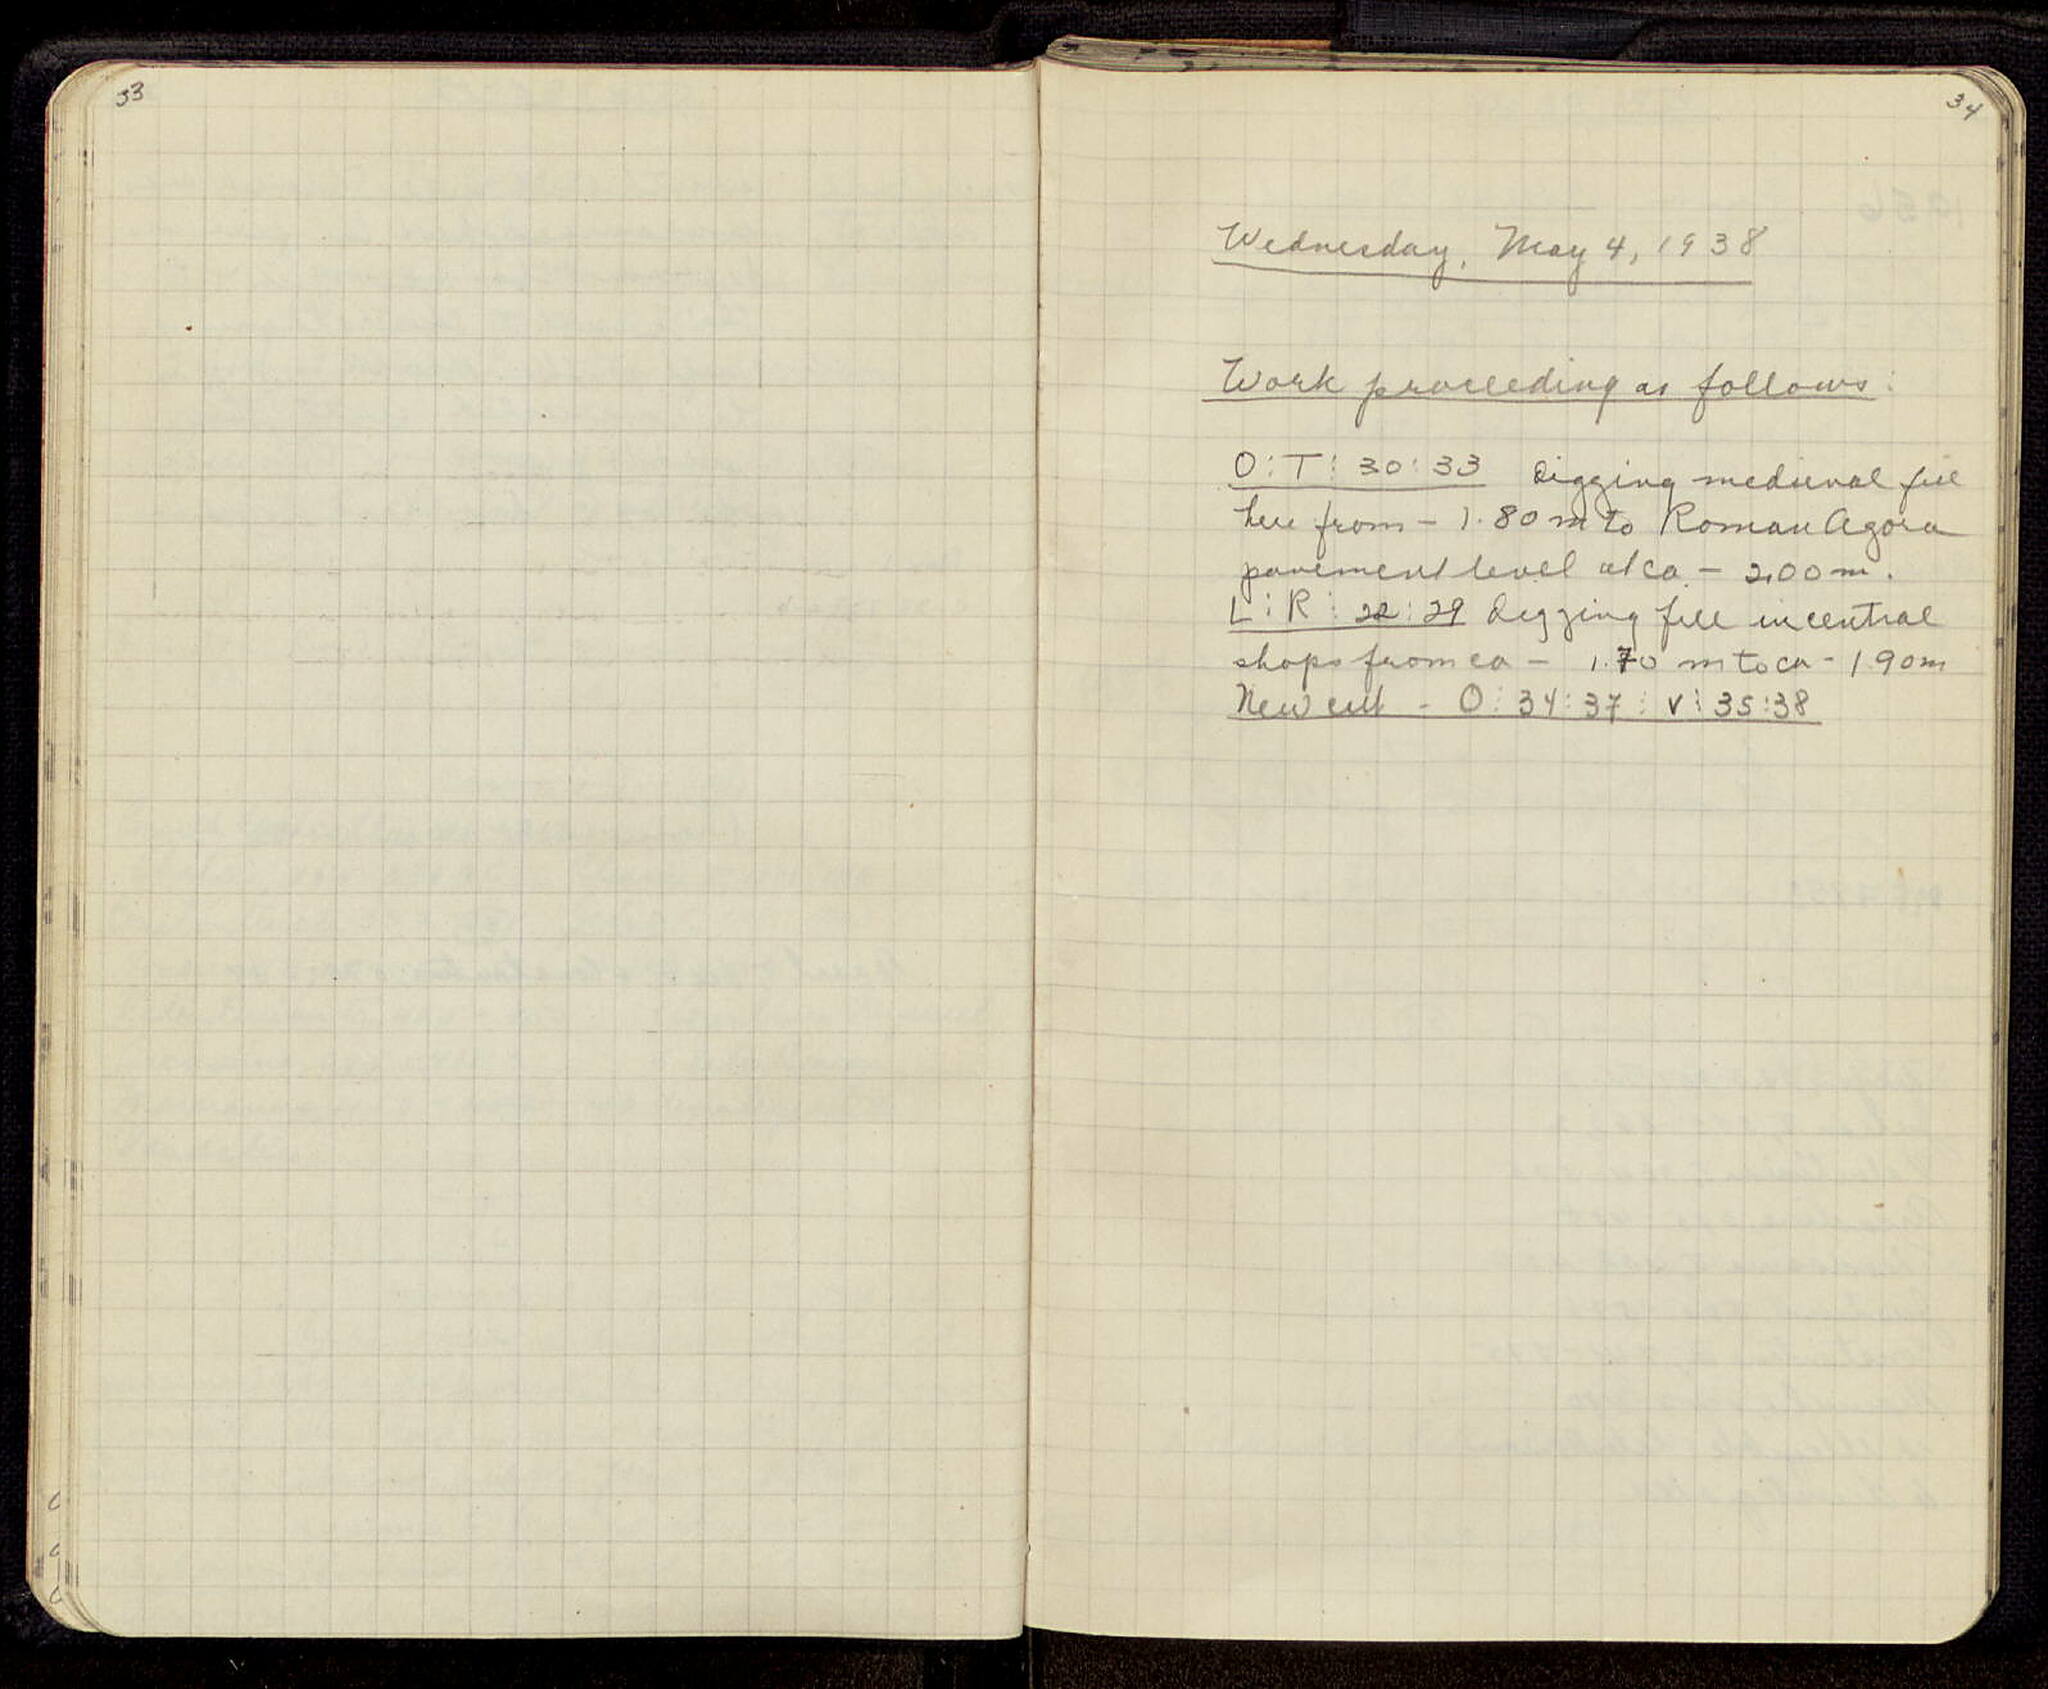 33
34
Wednesday, May 4, 1938
Work proceeding as follows:
O:T:30:33 Digging medieval fill
here from - 1.80 m to Roman Agora
pavement level at ca - 2.00 m.
L:R:22:29 Digging fill in central
shops from ca - 1.70 m to ca - 1.90m
New cut - O:34:37:V:35:38